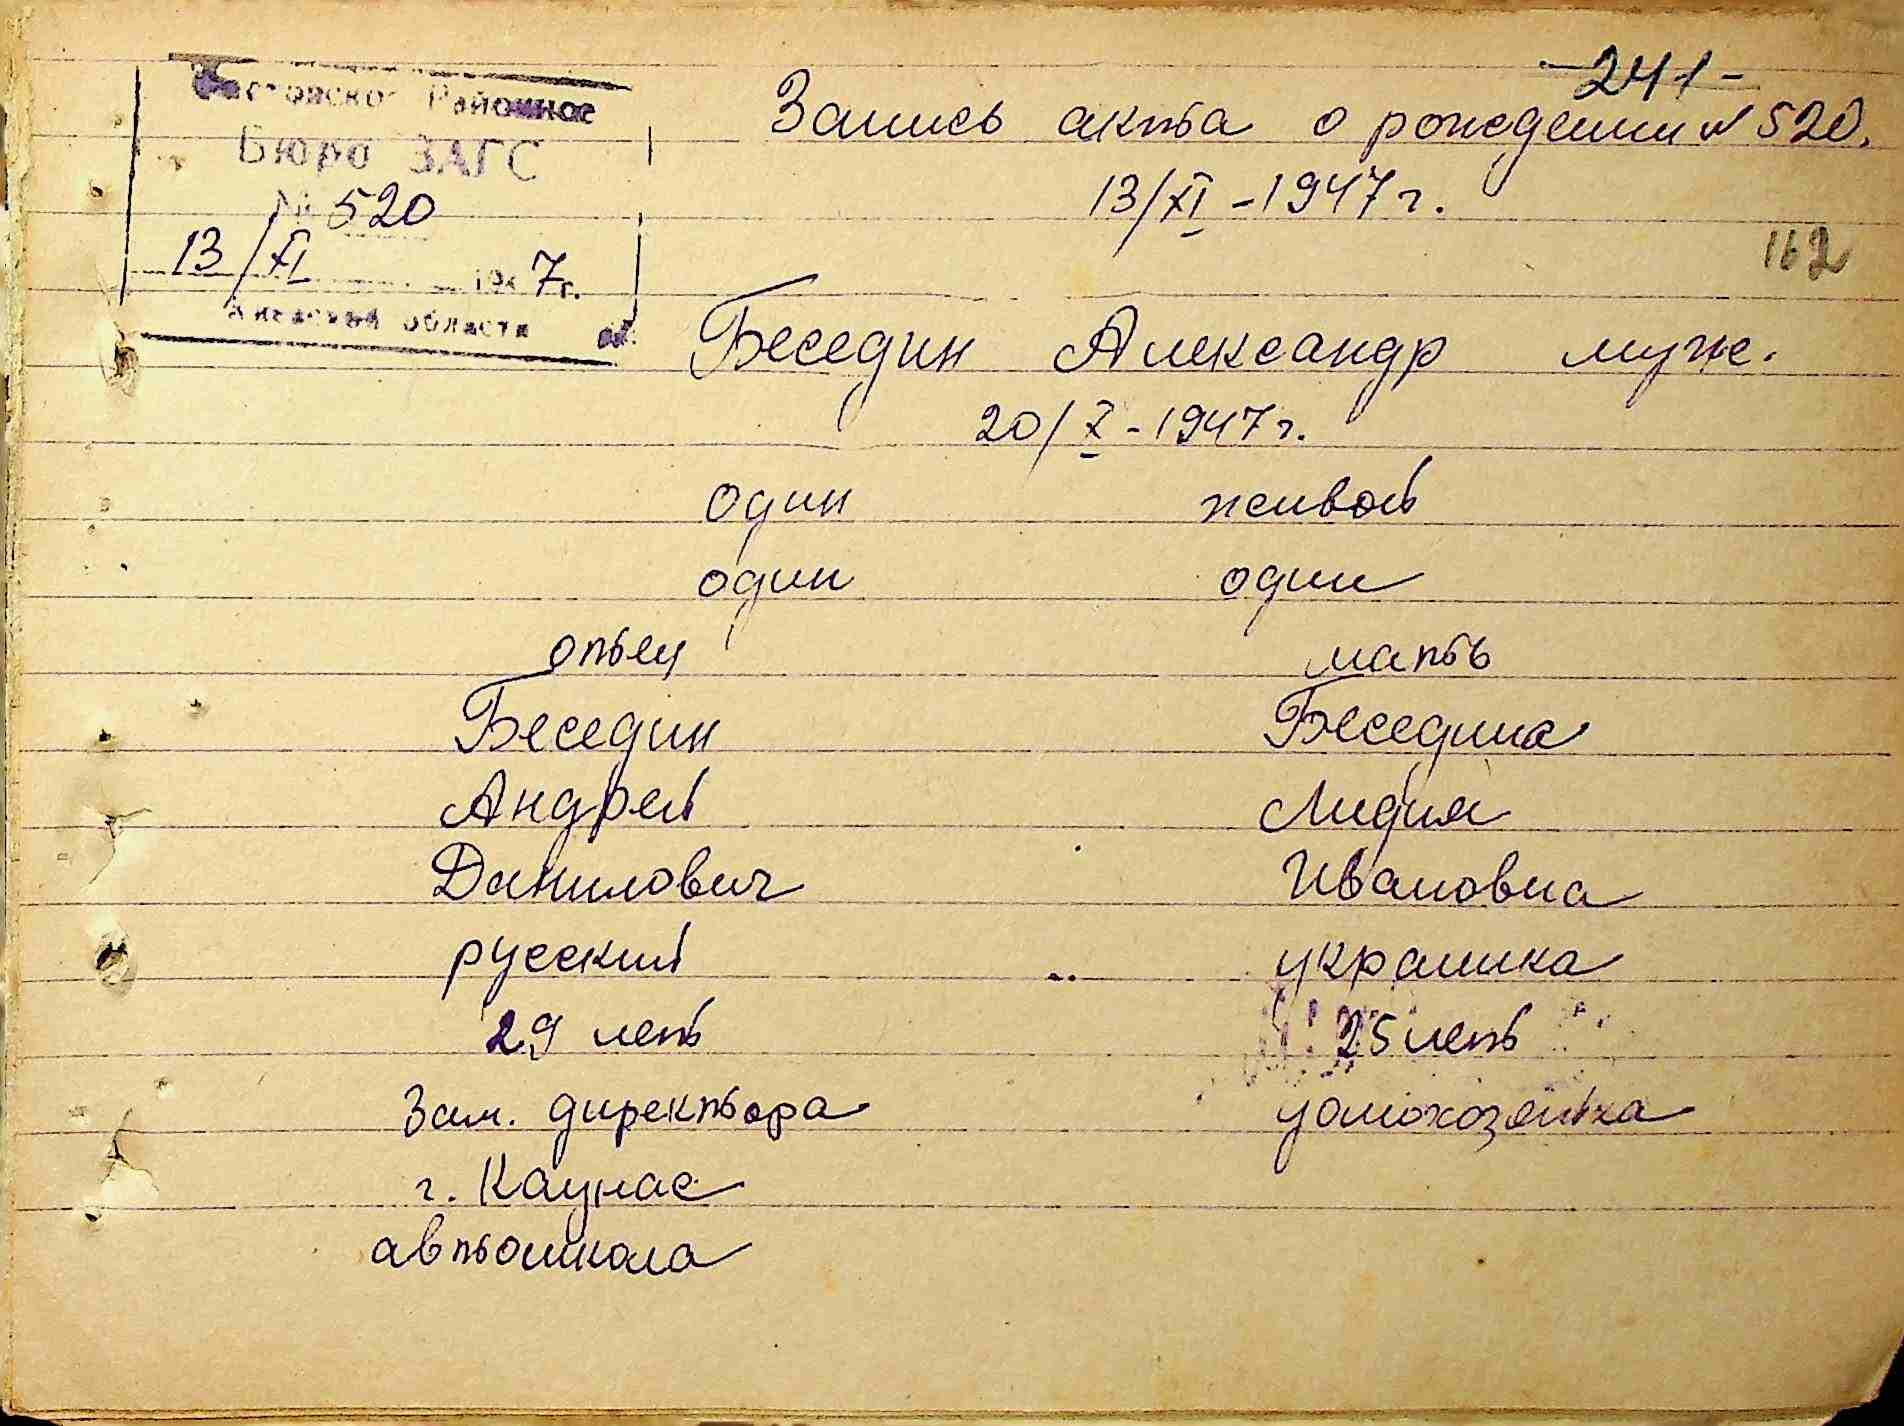 -241-
Районное
Запись акта о рождении № 520.
Бюро ЗАГС
13/XI - 1947 г.
№ 520
13/XI 1947г.
162
области
Беседин Александр муж.
20/X - 1947 г.
один живой
один один
отец мать
Беседин Беседина
Андрей Лидия
Данилович Ивановна
русский украинка
29 лет 25 лет
Зам. директора домохозяйка
г. Каунас
автошкола